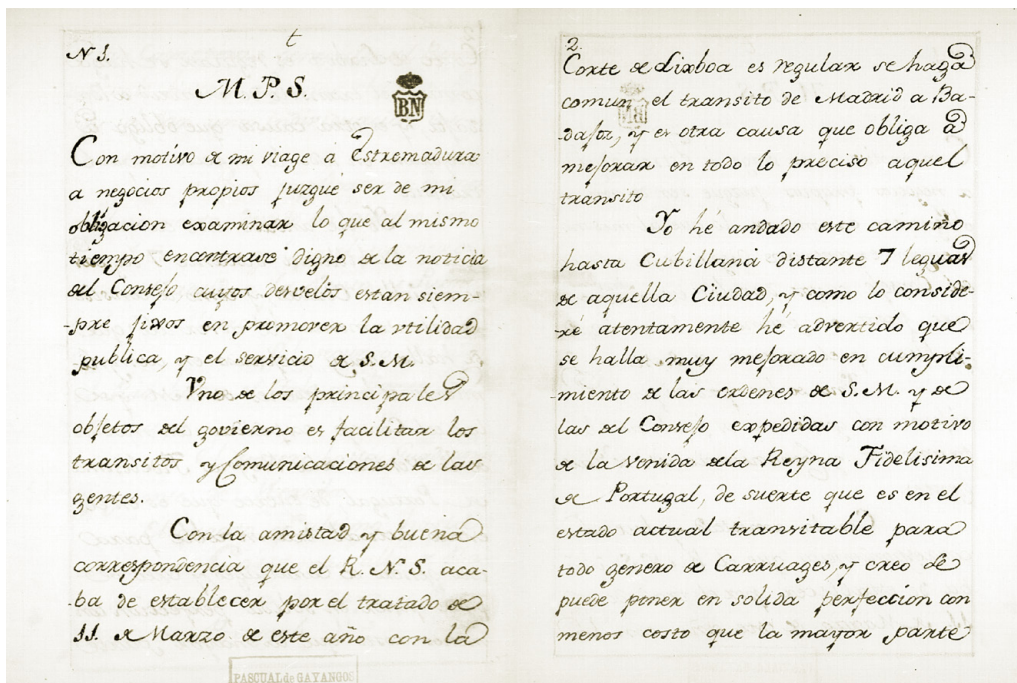 N 1.
t
M. P. S.
BN
Con motivo de mi viage a Estremadura
a negocios propios juzguè ser de mi
obligacion examinar lo que al mismo
tiempo encontrase digno de la noticia
del Consejo cuyos desvelos estan siem-
-pre fixos en promover la vtilidad
publica, y el servicio de S. M.
Vno de los principales
objetos del govierno es facilitar los
transitos y Comunicaciones de las
gentes.
Con la amistad y buena
correspondencia que el R. N. S. aca-
-ba de establecer por el tratado de
11. de Marzo de este año con la
PASCUAL de GAYANGOS
2.
Corte de Lixboa es regular se haga
comun el transito de Madrid a Ba-
dajoz, y es otra causa que obliga à
mejorar en todo lo preciso aquel
transito
Yo hé andado este camino
hasta Cubillana distante 7 leguas
de aquella Ciudad, y como lo conside-
-ré atentamente hé advertido que
se halla muy mejorado en cumpli-
-miento de las ordenes de S. M. y de
las del Consejo expedidas con motivo
de la venida de la Reyna Fidelisima
de Portugal, de suerte que es en el
estado actual transitable para
todo genero de Carruages, y creo se
puede poner en solida perfeccion con
menos costo que la mayor parte